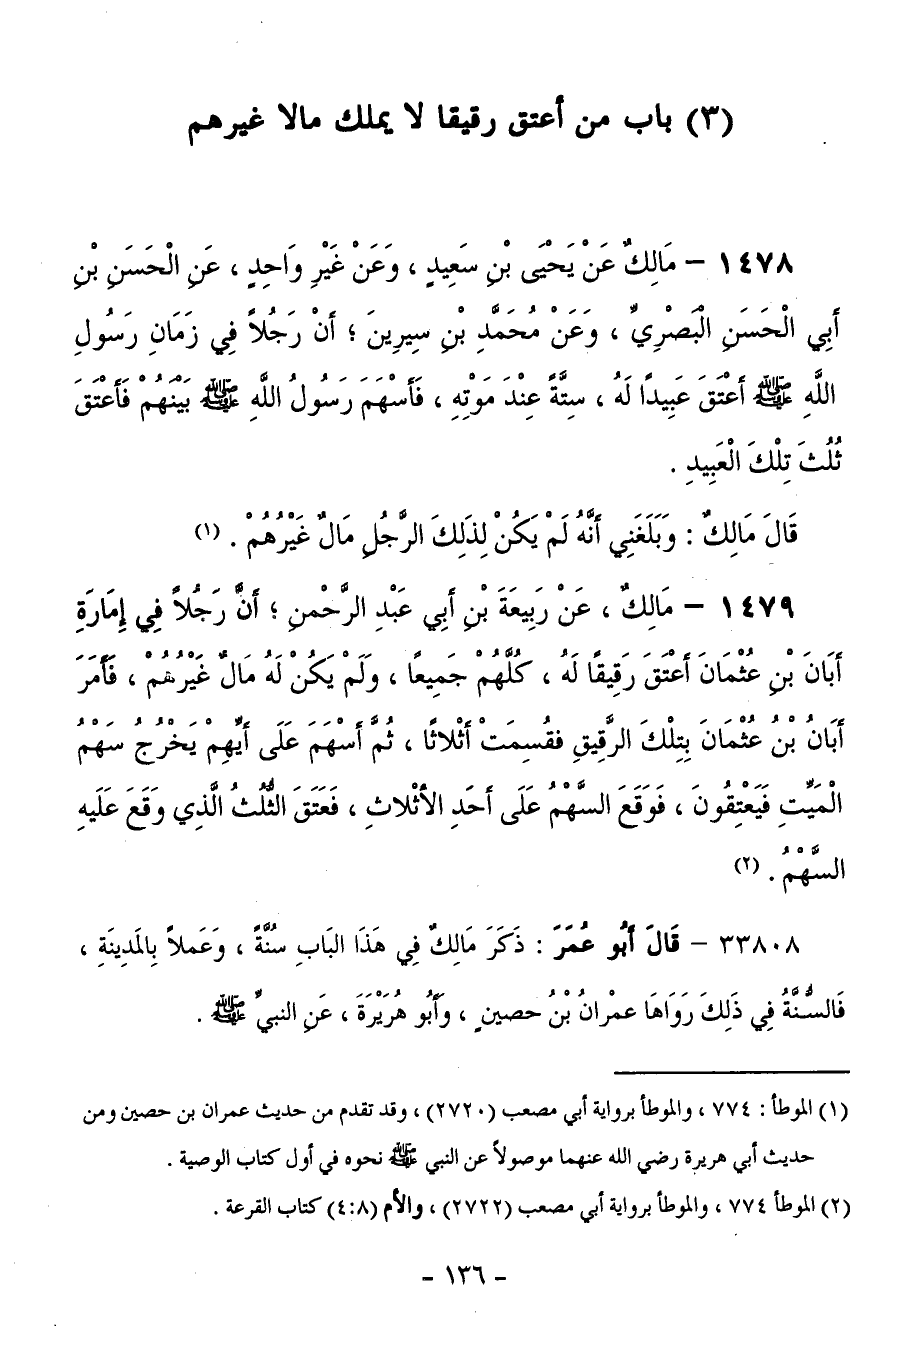 (٣) باب من أعتق رقيقا لا يملك مالا غيرهم
١٤٧٨ – مَالِكٌ عَنْ يَحْيَى بْنِ سَعِيدٍ ، وَعَنْ غَيْرِ وَاحِدٍ ، عَنِ الْحَسَنِ بْنِ
أَبِي الْحَسَنِ الْبَصْرِيِّ ، وَعَنْ مُحَمَّدِ بْنِ سِيرِينَ ؛ أَنْ رَجُلاً فِي زَمَانِ رَسُولِ
اللَّهِ ﷺ أَعْتَقَ عَبِيدًا لَهُ ، سِتَّةً عِنْدَ مَوْتِهِ ، فَأَسْهَمَ رَسُولُ اللَّهِ ﷺ بَيْنَهُمْ فَأَعْتَقَ
ثُلُثَ تِلْكَ الْعَبِيدِ .
قَالَ مَالِكٌ : وَبَلَغَنِي أَنَّهُ لَمْ يَكُنْ لِذَلِكَ الرَّجُلِ مَالٌ غَيْرُهُمْ . (١)
١٤٧٩ – مَالِكٌ ، عَنْ رَبِيعَةَ بْنِ أَبِي عَبْدِ الرَّحْمنِ ؛ أَنَّ رَجُلاً فِي إِمَارَةِ
أَبَانَ بْنِ عُثْمَانَ أَعْتَقَ رَقِيقًا لَهُ ، كُلَّهُمْ جَمِيعًا ، وَلَمْ يَكُنْ لَهُ مَالٌ غَيْرُهُمْ ، فَأَمَرَ
أَبَانُ بْنُ عُثْمَانَ بِتِلْكَ الرَّقِيقِ فَقُسِمَتْ أَثْلاثًا ، ثُمَّ أَسْهَمَ عَلَى أَيِّهِمْ يَخْرُجُ سَهْمُ
الْمَيِّتِ فَيَعْتِقُونَ ، فَوَقَعَ السَّهْمُ عَلَى أَحَدِ الأَثْلاثِ ، فَعَتَقَ الثُّلُثُ الَّذِي وَقَعَ عَلَيهِ
السَّهْمُ . (٢)
٣٣٨٠٨ – قَالَ أَبُو عُمَرَ : ذَكَرَ مَالِكٌ فِي هَذَا البَابِ سُنَّةً ، وَعَملاً بِالمَدِينَةِ ،
فَالسُّنَّةُ فِي ذَلِكَ رَوَاهَا عِمْرَانُ بْنُ حصينٍ ، وَأَبُو هُرَيْرَةَ ، عَنِ النبيِّ ﷺ .
(١) الموطأ : ٧٧٤ ، والموطأ برواية أبي مصعب (٢٧٢٠) ، وقد تقدم من حديث عمران بن حصين ومن
حديث أبي هريرة رضي الله عنهما موصولاً عن النبي ﷺ نحوه في أول كتاب الوصية .
(٢) الموطأ ٧٧٤ ، والموطأ برواية أبي مصعب (٢٧٢٢) ، والأم (٤:٨) كتاب القرعة .
- ١٣٦ -